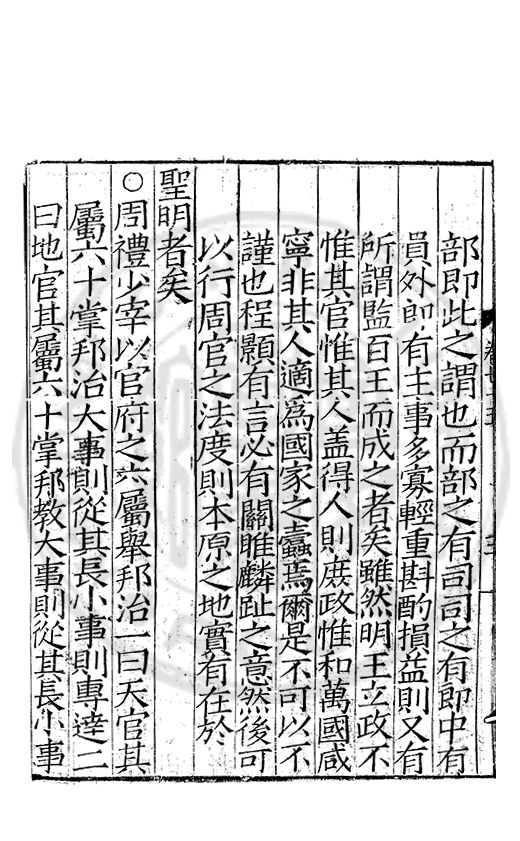 部即此之謂也而部之有司司之有郎中有
員外郎有主事多寡輕重斟酌損益則又有
所謂監百王而成之者矣雖然明王立政不
惟其官惟其人盖得人則庶政惟和萬國咸
寧非其人適爲國家之蠹焉爾是不可以不
謹也程顥有言必有關雎麟趾之意然後可
以行周官之法度則本原之地實有在於
聖明者矣
○周禮少宰以官府之六屬舉邦治一曰天官其
屬六十掌邦治大事則從其長小事則專達二
曰地官其屬六十掌邦教大事則從其長小事